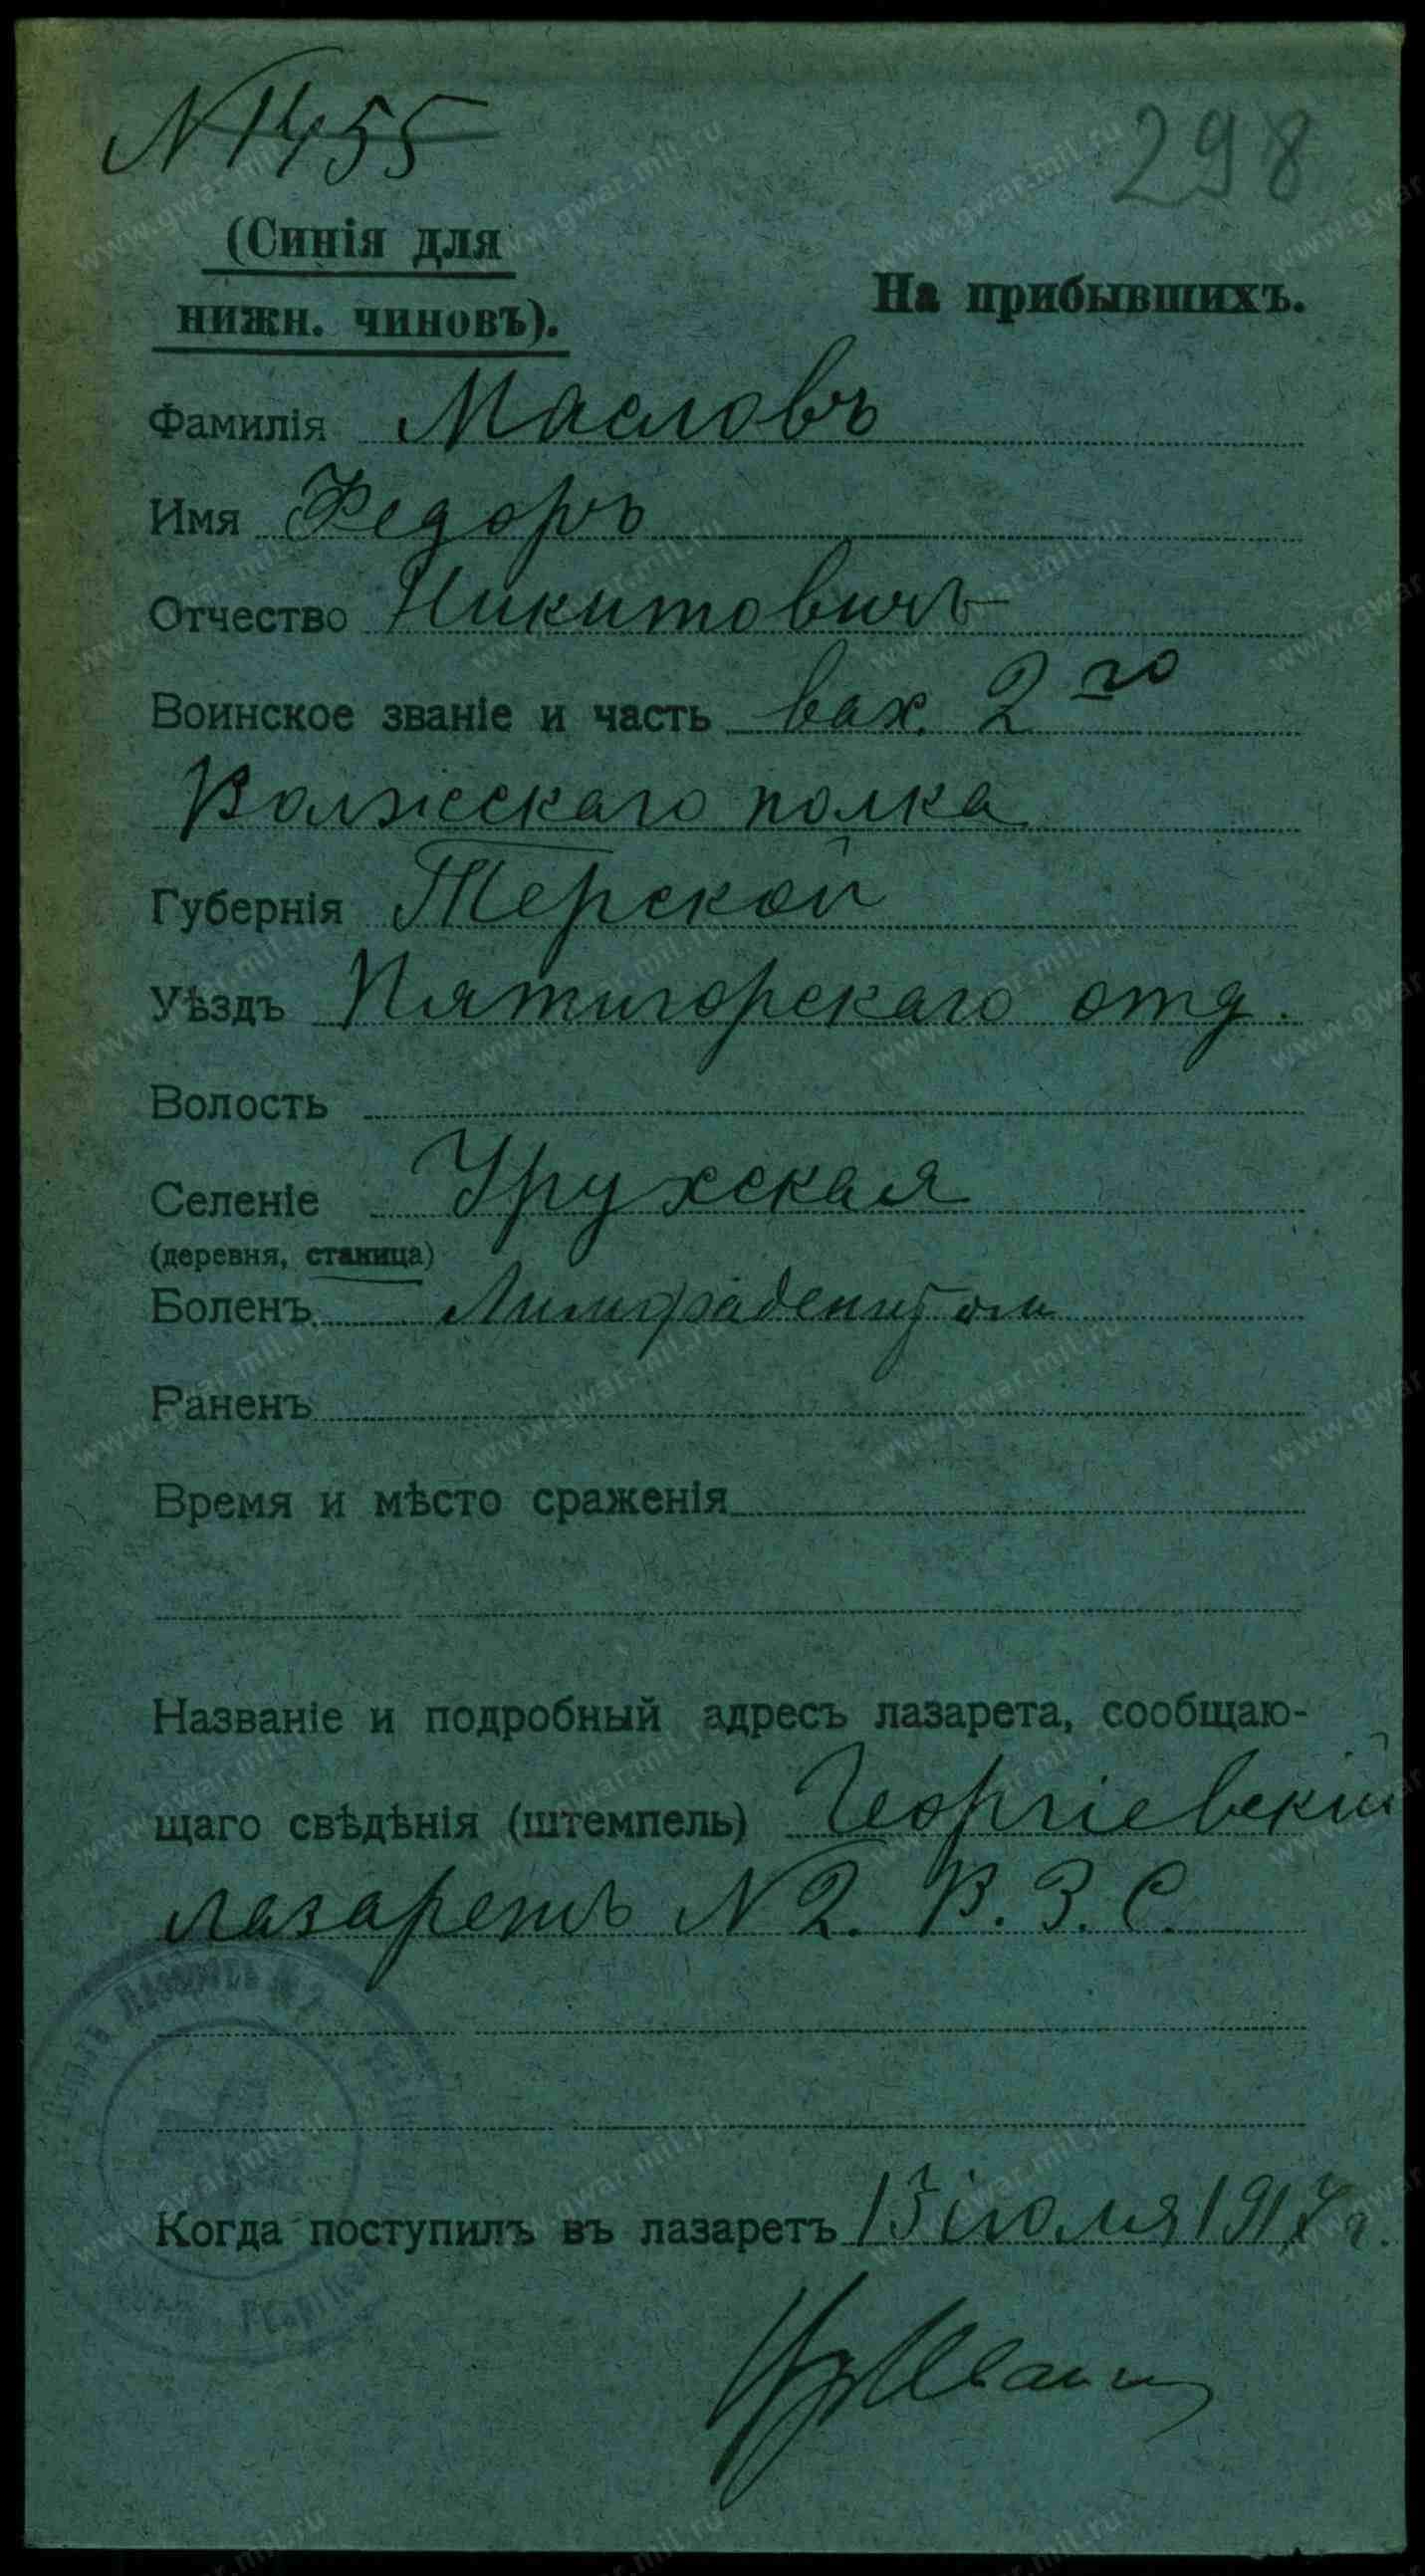 N 1455
298
(Синія для
нижн. чиновъ).
На прибывшихъ.
Фамилія Масловъ
Имя Федоръ
Отчество Никитовичъ
Воинское званіе и часть вах. 2го
Волжскаго полка
Губернія Терской
Уѣздъ Пятигорскаго отд.
Волость
Селеніе Урухская
(деревня, станица)
Боленъ Лимфаденитом
Раненъ
Время и мѣсто сраженія
Названіе и подробный адресъ лазарета, сообщаю-
щаго свѣдѣнія (штемпель) Георгіевскій
лазаретъ N 2. В. З. С.
Когда поступилъ въ лазаретъ 13 іюля 1917 г.